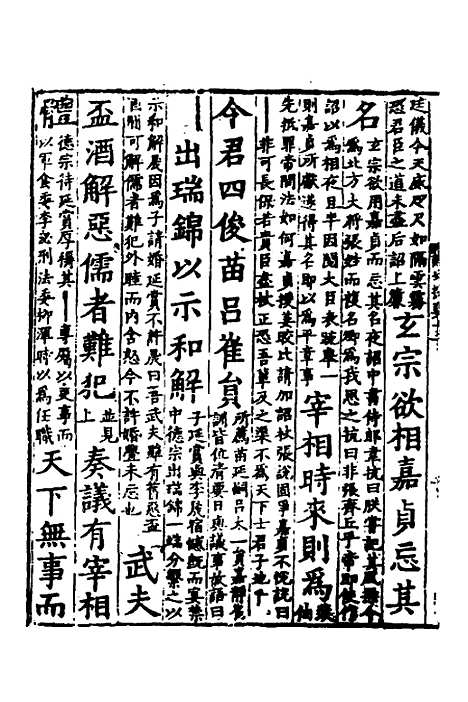 廷儀今天威咫尺又如隔雲霧
恐君臣之道未盡后詔上簾
玄宗欲相嘉貞忘其
名
玄宗欲用嘉貞而忘其名夜詔中書侍郎韋抗曰朕嘗記其風操今
為北方大將張姓而複名卿為我思之抗曰非張齊丘乎帝即使作
詔以為相夜且半因閱大臣表疏舉一
則嘉貞所獻遂得其名即以為平章事
宰相時來則為
仙
先抵罪當問法如何嘉貞援姜皎比請加詔杖張說固爭嘉貞不悅說曰
非可長保若貴臣盡杖正恐吾輩及之渠不為天下士君子地乎
今君四俊苗呂崔員
所薦苗延嗣呂太一員嘉靜崔
訓皆位清要日與議事故語曰
出瑞錦以示和解
子延賞與李晟宿憾既而宴禁
中德宗出瑞錦一端分繫之以
示和解晟因為子請婚延賞不許晟曰吾武夫雖有舊惡盃
酒間可解儒者難犯外睦而內含怒今不許婚釁未忘也
武夫
盃酒解惡儒者難犯
並見
上
奏議有宰相
體
德宗待延賞厚稱其——專屬以吏事而
以軍食委李泌刑法委柳渾時以為任職
天下無事而